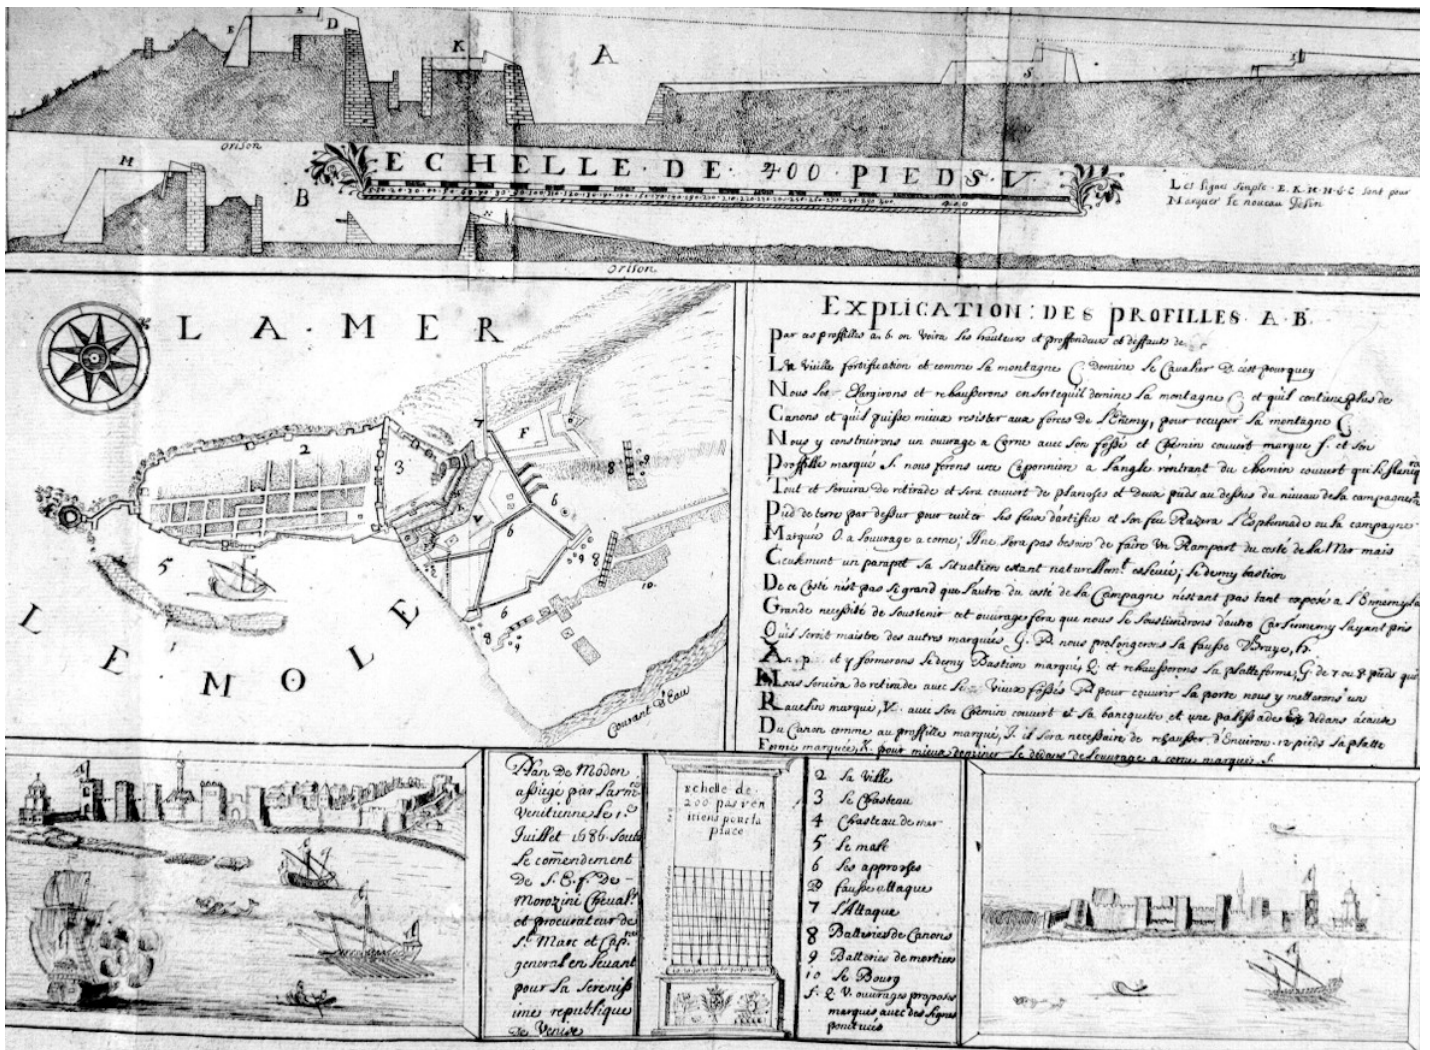 E K D K A S
orison
ECHELLE · DE · 400 · PIEDS · V ·
400
M B N
Les lignes simple · E · K · M · N · & · C sont pour
Marquer le nouveau desin
orison
LA · MER
2 3 7 F 8 9
V 6 6 8 9
5 10 ·
6 8
LE · MOLE
Courant d'Eau
EXPLICATION : DES PROFILLES · A · B ·
Par ces proffilles a. b. on voira les hauteurs et proffondeurs et deffauts de
La vieille fortification et comme la montagne C domine le Cavalier D. c'est pourquoy
Nous les Elargirons et rehausserons en sorte qu'il domine la montagne C et qu'il contiene plus de
Canons et qu'il puisse mieux resister aux forces de L'Enemy, pour occuper la montagne C
Nous y construirons un ouvrage a Corne avec son fossé et Chemin couvert marque f. et son
Proffille marqué S. nous ferons une Caponniere a l'angle rentrant du chemin couvert qui le
Tout et servira de retirade et sera couvert de planches et Deux pieds au dessus du niveau de la campagne
Pied de terre par dessur pour eviter les feux d'artifice et son feu Razera l'Esplannade ou la campagne
Marqué O. a l'ouvrage a corne; Il ne sera pas besoin de faire Un Rampart du costé de la Mer mais
Ceulement un parapet sa situation estant naturellem.t eslevée; le demy bastion
De ce Costé n'est pas si grand que l'autre du costé de la Campagne n'estant pas tant exposé a l'Ennemy la
Grande necessité de soustenir cet ouvrage fera que nous le soustiendrons d'autre Car l'ennemy l'ayant pris
Qu'il seroit maistre des autres marqués G. D. nous prolongerons la fausse Braye, h.
An. p. et y formerons le demy Bastion marqué, Q. et rehausserons la platteforme, G. de 7 ou 8 pieds qui
Nous servira de retirade avec le Vieux fossés pour couvrir la porte nous y metterons un
Ravelin marqué, V. avec son Chemin couvert et sa bancquette et une palissade dedans a cause
Du Canon comme au proffille marqué, I. il sera necessaire de rehausser d'Environ 12 pieds la platte
Forme marquée, K. pour mieux dominer le dedans de l'ouvrage a corne marqué f.
Plan de Modon
assiegé par l'arm.ée
Venitienne le 1.er
Juillet 1686. Soubs
Le comendement
De S. E. f. De
Morozini Cheval.r
et procurateur de
S.t Marc et Cap.ne
general en levant
pour la Sereniss
ime republique
de Venise
Echelle de
200 pas ven
itiens pour la
place
2 La Ville
3 Le Chasteau
4 Chasteau de mer
5 Le mole
6 Les approches
D fausse attaque
7 L'Attaque
8 Batteries de Canons
9 Batteries de mortiers
10 Le Bourg
f. Q. V. ouvrages proposés
marqués avec des lignes
ponctués